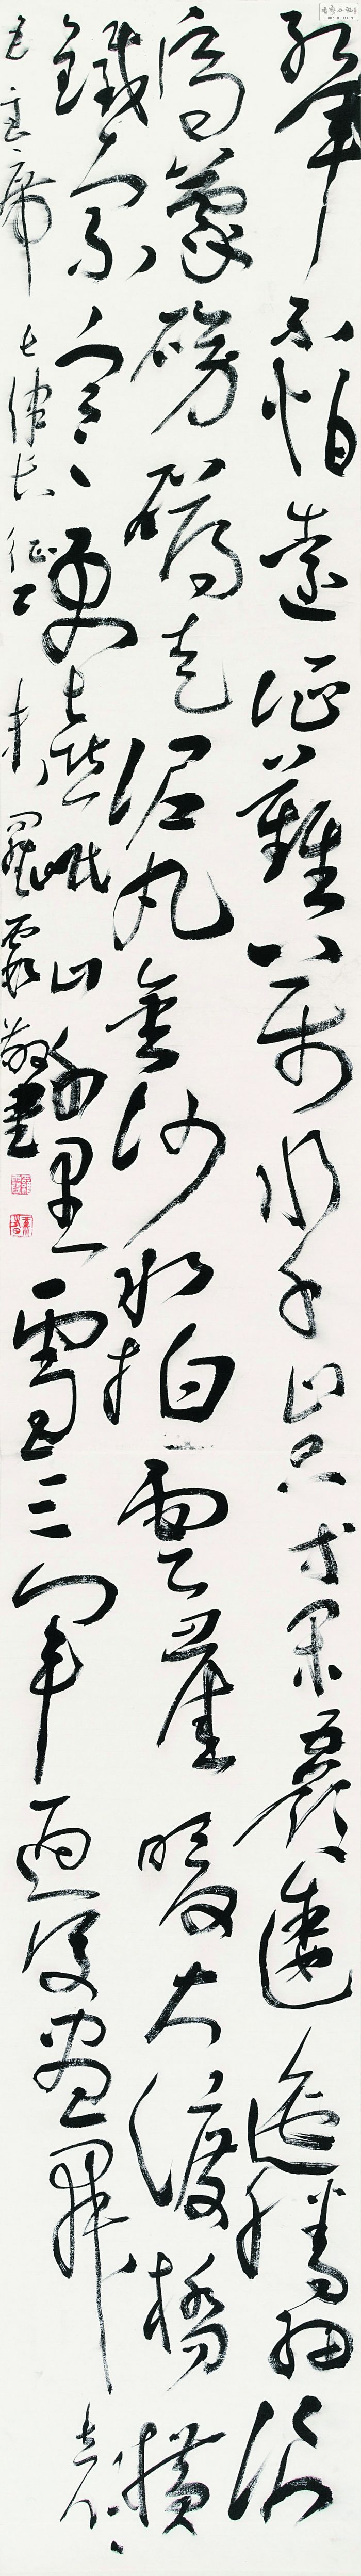 紅軍不怕遠征難萬水千山只等閑五嶺逶迤騰細浪
烏蒙磅礴走泥丸金沙水拍雲崖暖大渡橋橫
鐵索寒更喜岷山千里雪三軍過後盡開顏
毛主席七律長征敬書